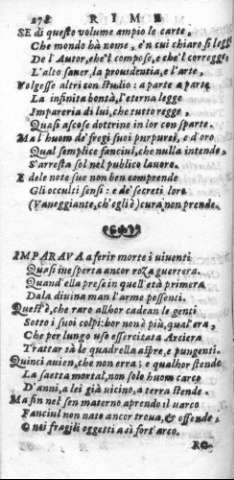 278 RIME
SE di questo volume ampio le carte,
Che mondo hà nome, e'n cui chiaro si legge
De l'Autor, che'l compose, e che'l corregge
L'alto saper, la prouidentia, e l'arte,
Volgesse altri con studio: a parte a parte
La infinita bontà, l'eterna legge
Impareria di lui, che tutto regge,
Quasi ascose dottrine in lor consparte.
Ma l'huom de' fregi suoi purpurei, e d'oro
Qual semplice fanciul, che nulla intende,
S'arresta sol nel publico lauoro.
E dele note sue non ben comprende
Gli occulti sensi: e de' secreti loro
(Vaneggiante, ch'egli è) cura non prende.
IMPARAVA a ferir morte i viuenti
Quasi inesperta ancor roza guerrera.
Quand'ella prese in quell'età primera
Dala diuina man l'arme possenti.
Quest'è, che raro allhor cadean le genti
Sotto i suoi colpi: hor non è più, qual'era,
Che per lungo uso essercitata Arciera
Trattar sà le quadrella aspre, e pungenti.
Quinci auien, che non erra: e qualhor stende
La saetta mortal, non solo huom carco
D'anni, a lei già vicino, a terra stende.
Ma fin nel sen materno aprendo il uarco
Fanciul non nato ancor troua, & offende,
O nei fragili oggetti a sì fort'arco.
RO.